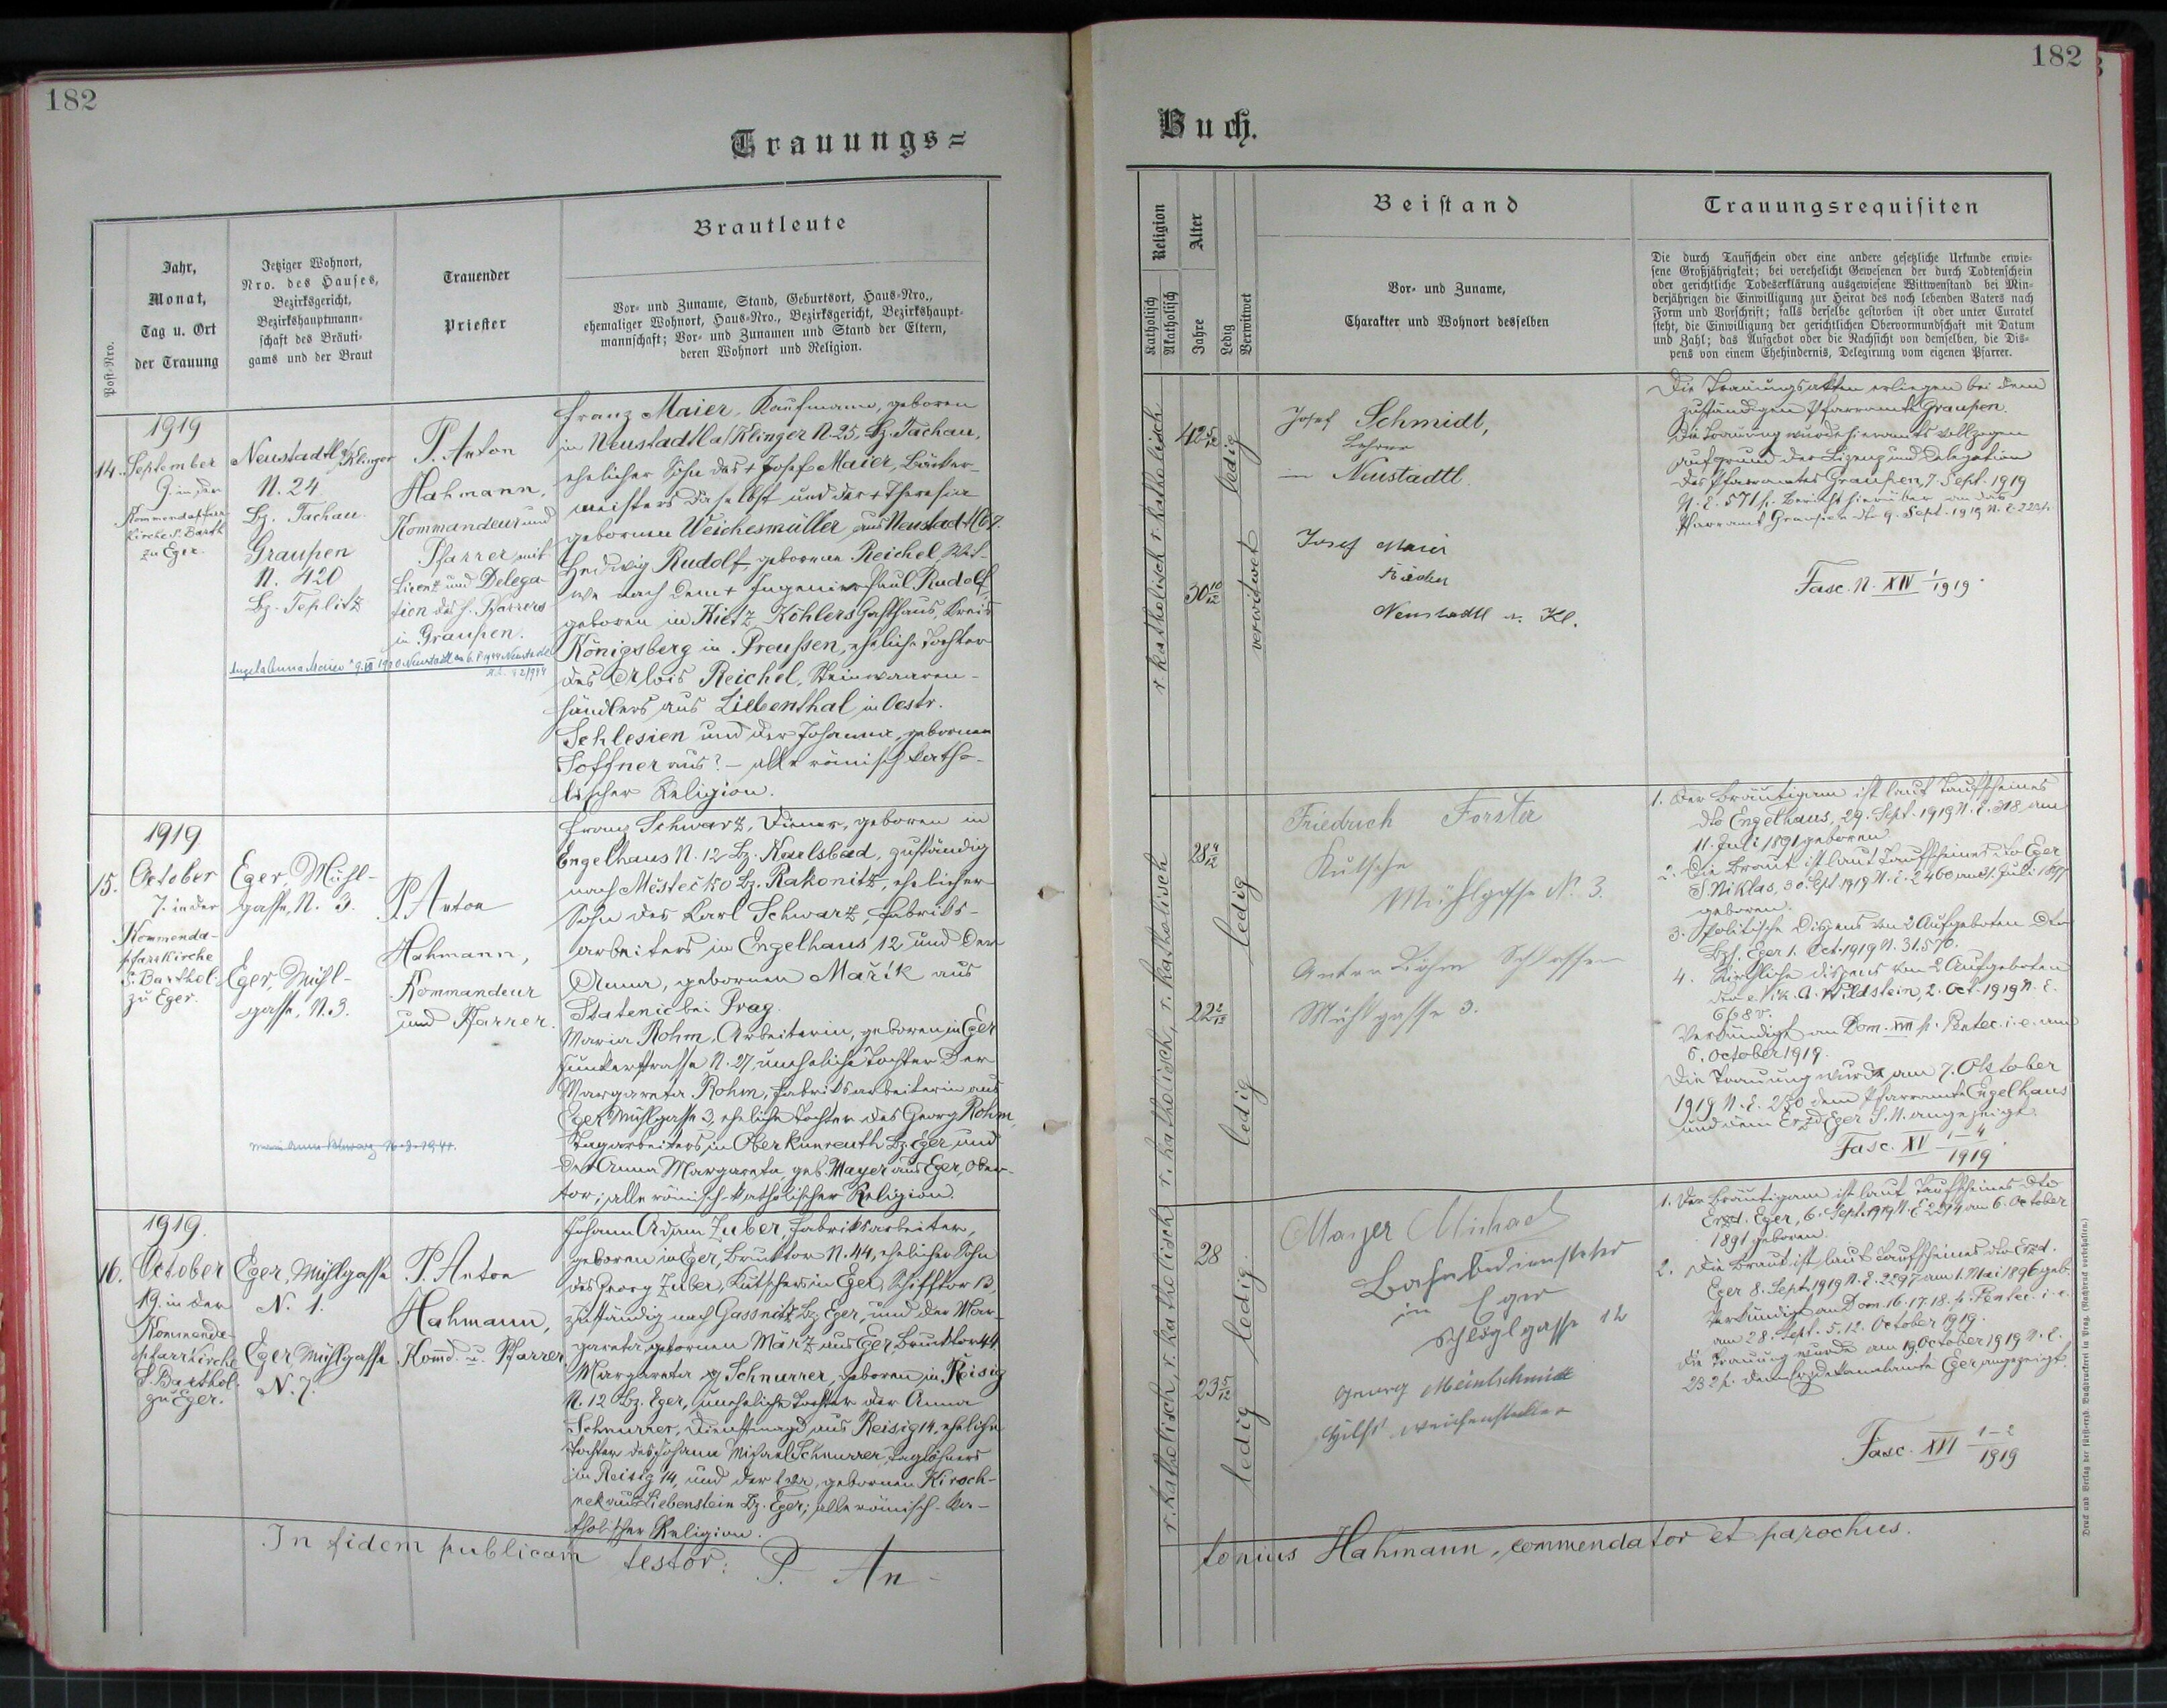 182
Trauungs=
Post-Nro.
Jahr,
Monat,
Tag u. Ort
der Trauung
Jetziger Wohnort,
Nro. des Hauses,
Bezirksgericht,
Bezirkshauptmann-
schaft des Bräuti-
gams und der Braut
Trauender
Priester
Brautleute
Vor- und Zuname, Stand, Geburtsort, Haus-Nro.,
ehemaliger Wohnort, Haus-Nro., Bezirksgericht, Bezirkshaupt-
mannschaft; Vor- und Zunamen und Stand der Eltern,
deren Wohnort und Religion.
14.
1919
September
9. in der
Kommendapfarr
kirche S. Barth
zu Eger.
Neustadtl a/Klinger
N. 24
Bz. Tachau.
Graupen
N. 420
Bz. Teplitz
P. Anton
Hahmann,
Kommandeur und
Pfarrer mit
Licenz und Delega-
tion des h. Pfarrers
in Graupen.
Franz Maier, Kaufmann, geboren
in Neustadtl a/Klinger N. 25, Bz. Tachau,
ehelicher Sohn des + Josef Maier, Bäcker-
meisters daselbst und der + Theresia
gebornen Weichesmüller aus Neustadtl 67.
Hedwig Rudolf, geborene Reichel, Wit-
we nach dem + Ingenieur Paul Rudolf,
geboren in Kietz, Köhlers Gasthaus, Kreis
Königsberg in Preußen, eheliche Tochter
des Alois Reichel, Steinwaaren-
händlers aus Liebenthal in Oestr.
Schlesien und der Johanna, gebornen
Soffner aus? – alle römisch katho-
lischer Religion.
15.
1919
October
7. in der
Kommenda-
pfarrkirche
S. Barthol.
zu Eger.
Eger, Mühl-
gasse, N. 3.
Eger, Mühl-
gasse, N. 3.
P. Anton
Hahmann,
Kommandeur
und Pfarrer.
Franz Schwarz, Diener, geboren in
Engelhaus N. 12 Bz. Karlsbad, zuständig
nach Městečko Bz. Rakonitz, ehelicher
Sohn des Karl Schwarz, Fabriks-
arbeiters in Engelhaus 12 und der
Anna, gebornen Mařík aus
Statenic bei Prag.
Maria Rohm, Arbeiterin, geboren in Eger
N. 27, uneheliche Tochter der
Margareta Rohm, Fabriksarbeiterin aus
Eger Mühlgasse 3, eheliche Tochter des Georg Rohm,
Tagarbeiters in Oberkunreuth Bz. Eger und
der Anna Margareta, geb. Mayer aus Eger, Ober-
tor; alle römisch-katholischer Religion.
16.
1919.
October
19. in der
Kommenda-
pfarrkirche
S. Barthol.
zu Eger.
Eger, Mühlgasse
N. 1.
Eger Mühlgasse
N. 7.
P. Anton
Hahmann,
Komd. u. Pfarrer
Johann Adam Zuber, Fabriksarbeiter,
geboren in Eger, Brucktor N. 44, ehelicher Sohn
des Georg Zuber, Kutschers in Eger, Schifftor 13,
zuständig nach Gassnitz Bz. Eger, und der Mar-
gareta, gebornen März aus Eger Brucktor 44.
Margareta Schnurrer, geboren in Reisig
N. 12 Bz. Eger, uneheliche Tochter der Anna
Schnurrer, Dienstmagd aus Reisig 14, eheliche
Tochter des Johann Michael Schnurrer, Taglöhners
in Reisig 14, und der Eva, gebornen Kirsch-
nek aus Liebenstein Bz. Eger; alle römisch-ka-
tholischer Religion.
In fidem publicam testor: P. An-
182
Buch.
Religion
Katholisch
Akatholisch
Alter
Jahre
Ledig
Verwitwet
Beistand
Vor- und Zuname,
Charakter und Wohnort desselben
Trauungsrequisiten
Die durch Taufschein oder eine andere gesetzliche Urkunde erwie-
sene Großjährigkeit; bei verehelicht Gewesenen der durch Todtenschein
oder gerichtliche Todeserklärung ausgewiesene Wittwenstand bei Min-
derjährigen die Einwilligung zur Heirat des noch lebenden Vaters nach
Form und Vorschrift; falls derselbe gestorben ist oder unter Curatel
steht, die Einwilligung der gerichtlichen Obervormundschaft mit Datum
und Zahl; das Aufgebot oder die Nachsicht von demselben, die Dis-
pens von einem Ehehindernis, Delegirung vom eigenen Pfarrer.
r. katholisch r. katholisch
42 5/12
ledig
30 10/12
verwitwet
Josef Schmidt,
Lehrer
in Neustadtl.
Josef Maier
Neustadtl a. Kl.
Die Trauungsakten erliegen bei dem
zuständigen Pfarramte Graupen.
Die Trauung wurde hieramts vollzogen
auf Grund der Lizenz und Delegation
des Pfarramtes Graupen, 7. Sept. 1919
N. E. 571/. Bericht hierüber an das
Pfarramt Graupen dto 9. Sept. 1919 N. E. 223/.
Fasc. N. XIV 1/1919.
r. katholisch, r. katholisch
28
ledig
22 2/12
ledig
Friedrich Forster
Kutscher
Mühlgasse N. 3.
Anton Böhm Schlosser
Mühlgasse 3.
1. Der Bräutigam ist laut Taufscheines
dto Engelhaus, 29. Sept. 1919 N. E. 318 am
11. Juli 1891 geboren.
2. Die Braut ist laut Taufscheines dto Eger
S. Niklas, 30. Sept. 1919 N. E. 2460 am 1. Juli 1897
geboren.
3. Politische Dispens von 2 Aufgeboten dto
Bzh. Eger 1. Oct. 1919 N. 31.570.
4. Kirchliche Dispens von 2 Aufgeboten
dto e. vik. A. Wildstein, 2. Oct. 1919 N. E.
Verkündigt am Dom. XVII p. Pentec. i. e. am
5. October 1919.
Die Trauung wurde am 7. Oktober
1919 N. E. 250 dem Pfarramte Engelhaus
und dem Erzd. Eger S. N. angezeigt.
Fasc. XV 1–4/1919.
r. katholisch, r. katholisch
28
ledig.
23 5/12
ledig
Mayer Michael
Bahnbediensteter
in Eger
Schlöglgasse 12
Georg Meintschmidt
Hilfs weichensteller
1. Der Bräutigam ist laut Taufscheines dto
Erzd. Eger, 6. Sept. 1919 N. E. 2274 am 6. October
1891 geboren.
2. Die Braut ist laut Taufscheines dto Erzd.
Eger 8. Sept. 1919 N. E. 2297 am 1. Mai 1896 geb.
Verkündigt an Dom. 16. 17. 18. p. Pentec. i. e.
am 28. Sept. 5. 12. October 1919.
Die Trauung wurde am 19. October 1919 N. E.
232/. dem Erzdekanalamte Eger angezeigt.
Fasc. XVI 1–2/1919
tonius Hahmann, commendator et parochus.
Druck und Verlag der fürsterzb. Buchdruckerei in Prag. (Nachdruck vorbehalten.)